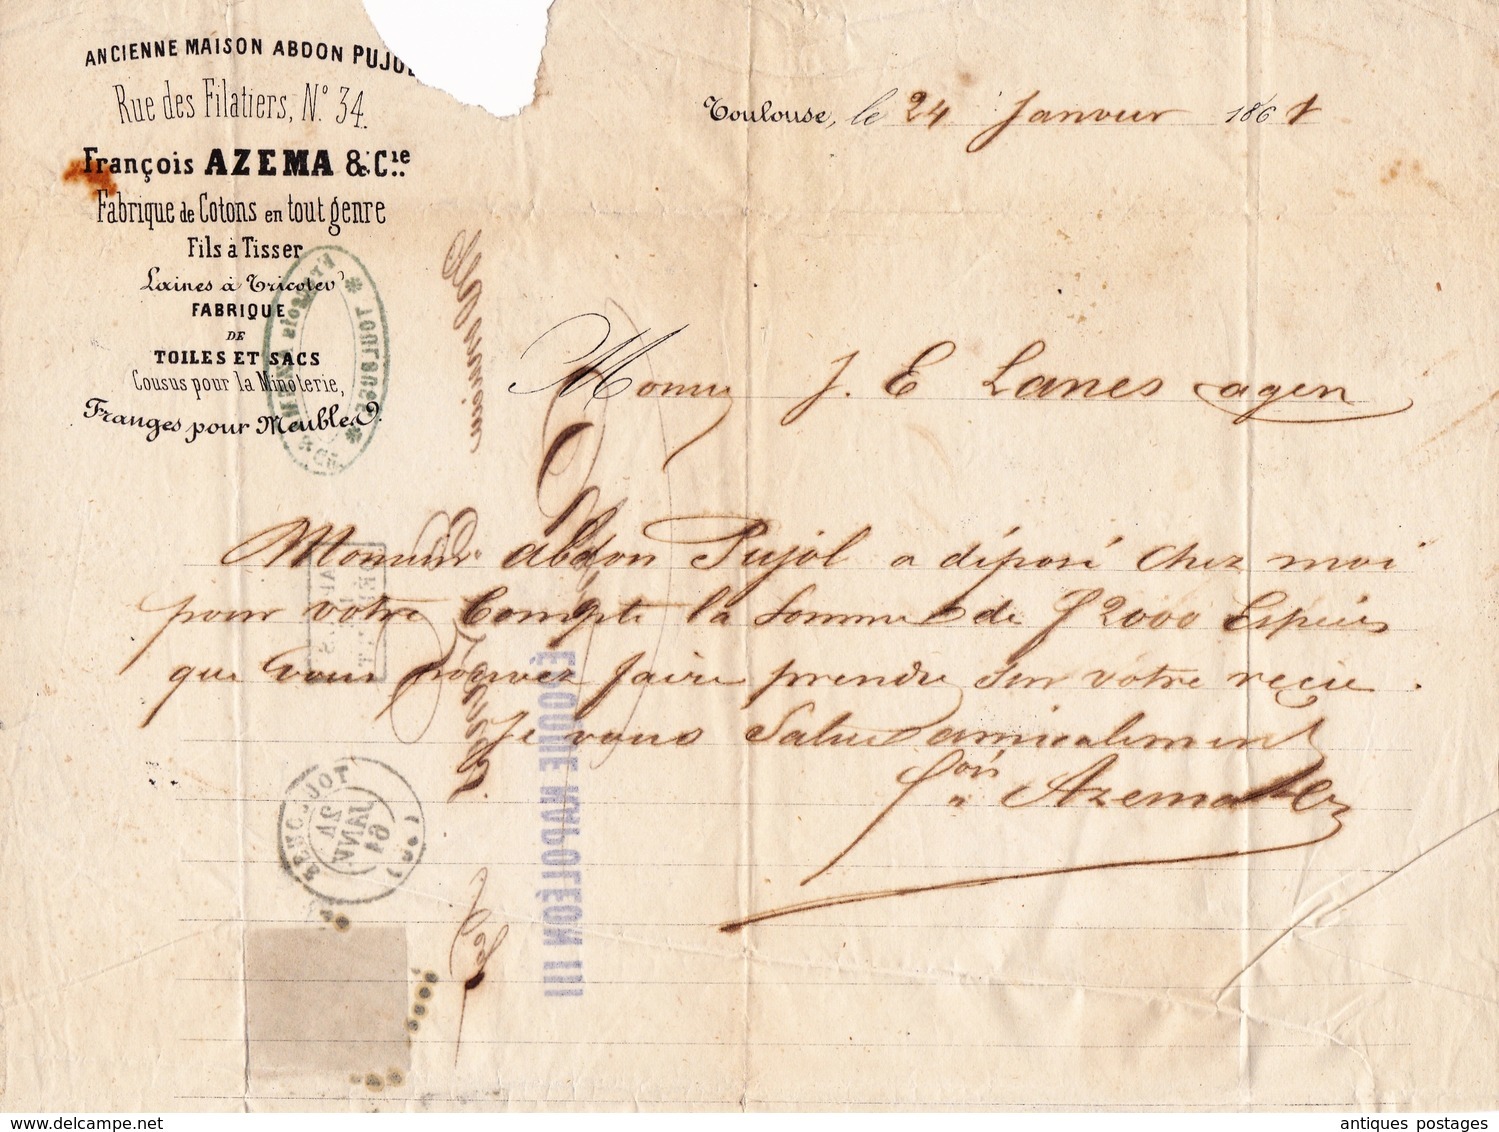 ANCIENNE MAISON ABDON PUJOL
Rue des Filatiers, N.° 34.
François AZEMA & C.ie
Fabrique de Cotons en tout genre
Fils à Tisser
Laines à Tricoter
FABRIQUE
DE
TOILES ET SACS
Cousus pour la Minoterie,
Franges pour Meubles.
Toulouse, le 24 Janvier 1861
Monsieur J. E Lanes agen
Monsieur Abdon Pujol a déposé chez moi
pour votre Compte la Somme de f 2000 Espèces
que vous pouvez faire prendre sur votre reçu.
Je vous Salue amicalement
f.ois Azema & Cie
TOULOUSE
24
JANV.
61
ÉPOQUE NAPOLÉON III
antiques postages